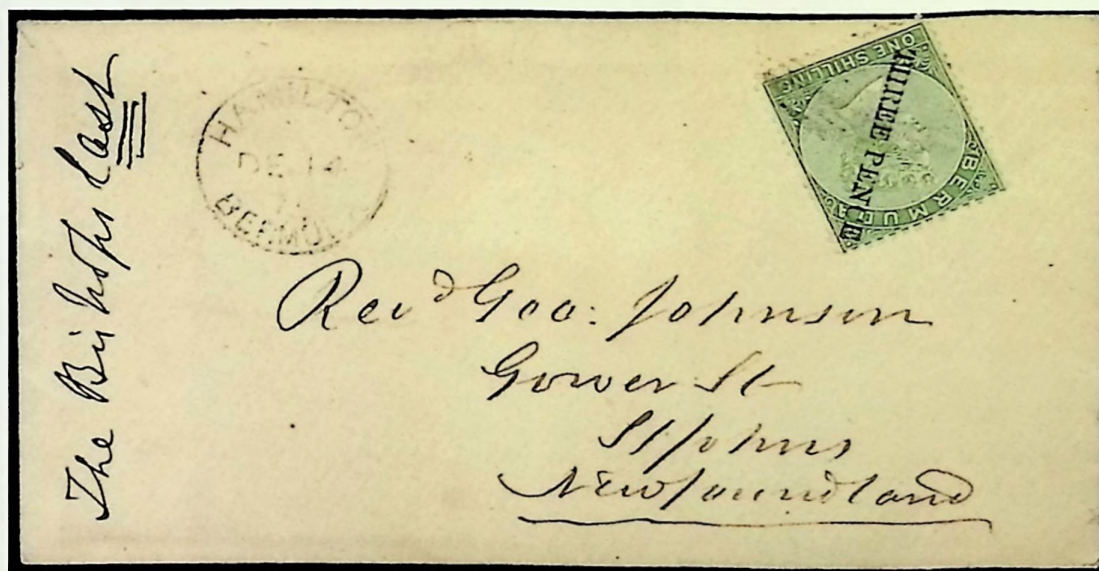 The Bishops Last
HAMILTON
DE 14
BERMUDA
ONE SHILLING
THREE PENCE
BERMUDA
Revd Geo: Johnson
Gower St
St Johns
Newfoundland